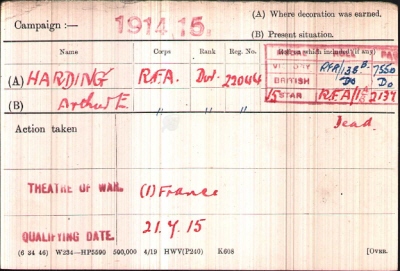 Campaign :— 1914.15.
(A) Where decoration was earned.
(B) Present situation.
Name Corps Rank Reg. No. Roll on which included (if any)
MEDAL ROLL PAGE
(A) HARDING R.F.A. Dvr. 22044 VICTORY RFA/138B. 7550
(B) Arthur E. " " " BRITISH Do Do
15 STAR RFA/1 2137
Action taken Dead.
THEATRE OF WAR. (1) France
QUALIFYING DATE. 21.7.15
(6 34 46) W234—HP5590 500,000 4/19 HWV(P240) K608 [OVER.